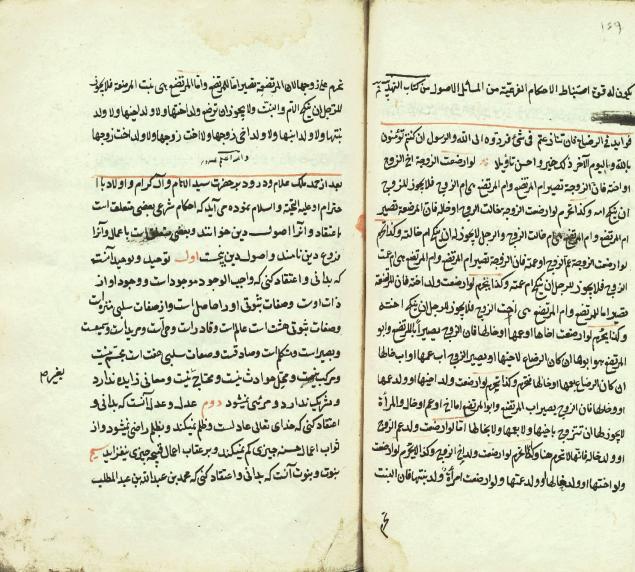 ١٤٩
يكون له قوة استنباط الاحكام الفرعية من المسائل الاصول من كتاب التهذيب
فوايد في الرضاع فان تنازعتم في شئ فردوه الى الله والرسول ان كنتم تؤمنون
بالله واليوم الآخر ذلك خير واحسن تأويلا لو ارضعت الزوجة اخ الزوج
او اخته فان الزوجة تصير ام المرتضع وام المرتضع هي ام الزوج فلا يجوز للزوج
ان ينكح امه وكذا يحرم لو ارضعت الزوجة خالت الزوج او خاله فان المرضعة تصير
ام المرتضع وام المرتضع هي ام خالت الزوج والرجل لا يجوز له ان ينكح ام خالته وكذا يحرم
لو ارضعت الزوجة عم الزوج او عمته فان الزوجة تصير ام المرتضع وام المرتضع هي ام عمت
الزوج فلا يجوز للرجل ان ينكح ام عمته وكذا يحرم لو ارضعت ولد اخته فان المرضعة
تصير اما للمرتضع وام المرتضع هي اخت الزوج فلا يجوز للرجل ان ينكح اخته
وكذا يحرم لو ارضعت اخاها او عمها او خالها فان الزوج يصير ابا للمرتضع وابو
المرتضع هو ابوها ان كان الرضاع لاخيها ويصير الزوج اب عمها او اب خالها
ان كان الرضاع لعمها او خالها فتحرم وكذا يحرم لو ارضعت ولد اخيها او ولد عمها
او ولد خالها فان الزوج يصير اب المرتضع وابو المرتضع اما اخ او عم او خال والمرأة
لا يجوز لها ان تتزوج باخيها ولا بعمها ولا بخالها اما لو ارضعت ولد عم الزوج
او ولد خاله فانها لا تحرم هنا وكذا لا تحرم لو ارضعت ولد اخ الزوج وكذا لا تحرم لو ارضعت
ولد اختها او ولد خالها او ولد عمتها ولو ارضعت امرأة ولد بنتها فان البنت
تحرم على زوجها لان المرتضعة تصير اما للمرتضع واما المرتضع هي بنت المرضعة فلا يجوز
للرجل ان ينكح الام والبنت ولا يجوز ان ترضع ولد اختها ولا ولد
بنتها ولا ولد ابنها ولا ولد اخي زوجها ولا اخت زوجها ولا ولد اخت زوجها
والله اعلم
بعد از حمد ملك علام ودرود بر حضرت سيد الانام وآل كرام واولاد با
احترام او عليه التحية والسلام نموده مى آيد كه احكام شرع بعضى متعلق است
باعتقاد وآنرا اصول دين خوانند وبعضى متعلق است باعمال وآنرا
فروع دين نامند واصول دين پنجست اول توحيد وتوحيد آنست
كه بدانى واعتقاد كنى كه واجب الوجود موجود است ووجود او از
ذات اوست وصفات ثبوتى او را حاصل است واز صفات سلبى منزه است
وصفات ثبوتى هشت است عالم است وقادر است وحى است ومريد است وسميعست
وبصير است ومتكلم است وصادقست وصفات سلبى هفت است جسم نيست
ومركب نيست ومحل حوادث نيست ومحتاج نيست ومعانى زايده ندارد
وشريك ندارد ومرئى نميشود دوم عدل وعدل آنست كه بدانى و
اعتقاد كنى كه خداى تعالى عادلست وظلم نميكند وبظلم راضى نميشود واز
ثواب اعمال حسنه چيزى كم نميكند وبر عقاب اعمال قبيح چيزى نميفزايد سيم
نبوت ونبوت آنست كه بدانى واعتقاد كنى كه محمد بن عبد الله بن عبد المطلب